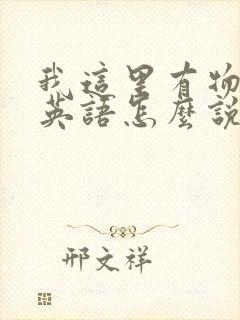 我這里有物
英語怎麼說
邢文祥